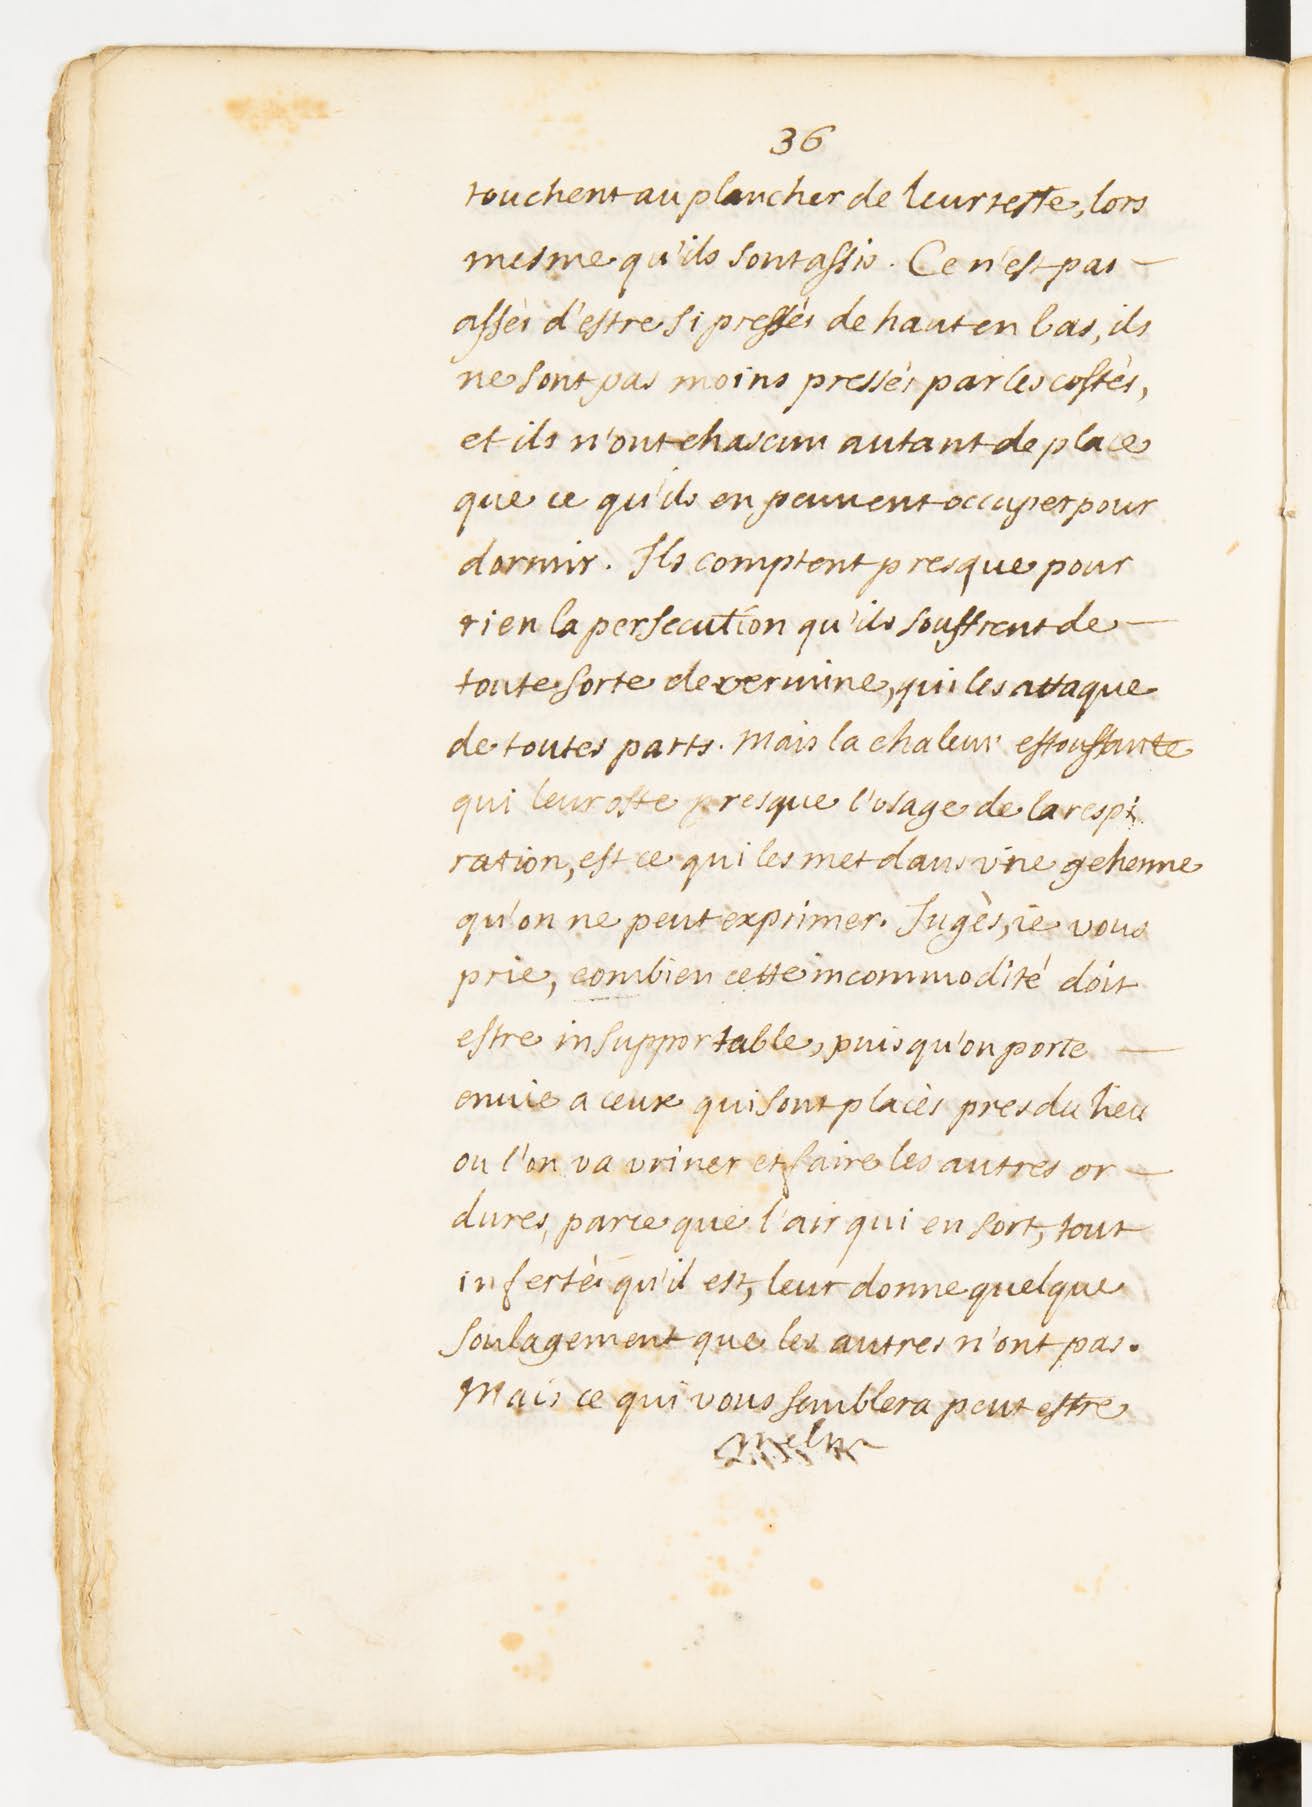 36
touchent au plancher de leur teste, lors
mesme qu'ils sont assis. Ce n'est pas
assés d'estre si pressés de haut en bas, ils
ne sont pas moins pressés par les costés,
et ils n'ont chascun autant de place
que ce qu'ils en peuvent occuper pour
dormir. Ils comptent presque pour
rien la persecution qu'ils souffrent de
toute sorte de vermine, qui les attaque
de toutes parts. Mais la chaleur estouffante
qui leur oste presque l'usage de la respi
ration, est ce qui les met dans vne gehenne
qu'on ne peut exprimer. Jugès, ie vous
prie, combien cette incommodité doit
estre insupportable, puis qu'on porte
envie a ceux qui sont placès pres du lieu
ou l'on va vriner et faire les autres or
dures, parce que l'air qui en sort, tout
infecté qu'il est, leur donne quelque
soulagement que les autres n'ont pas.
Mais ce qui vous semblera peut estre